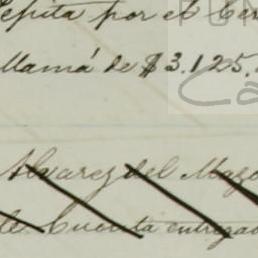 Pepita por el
Mamá de $3.125.
Alvarez del Mazo
de Cuenta entregada